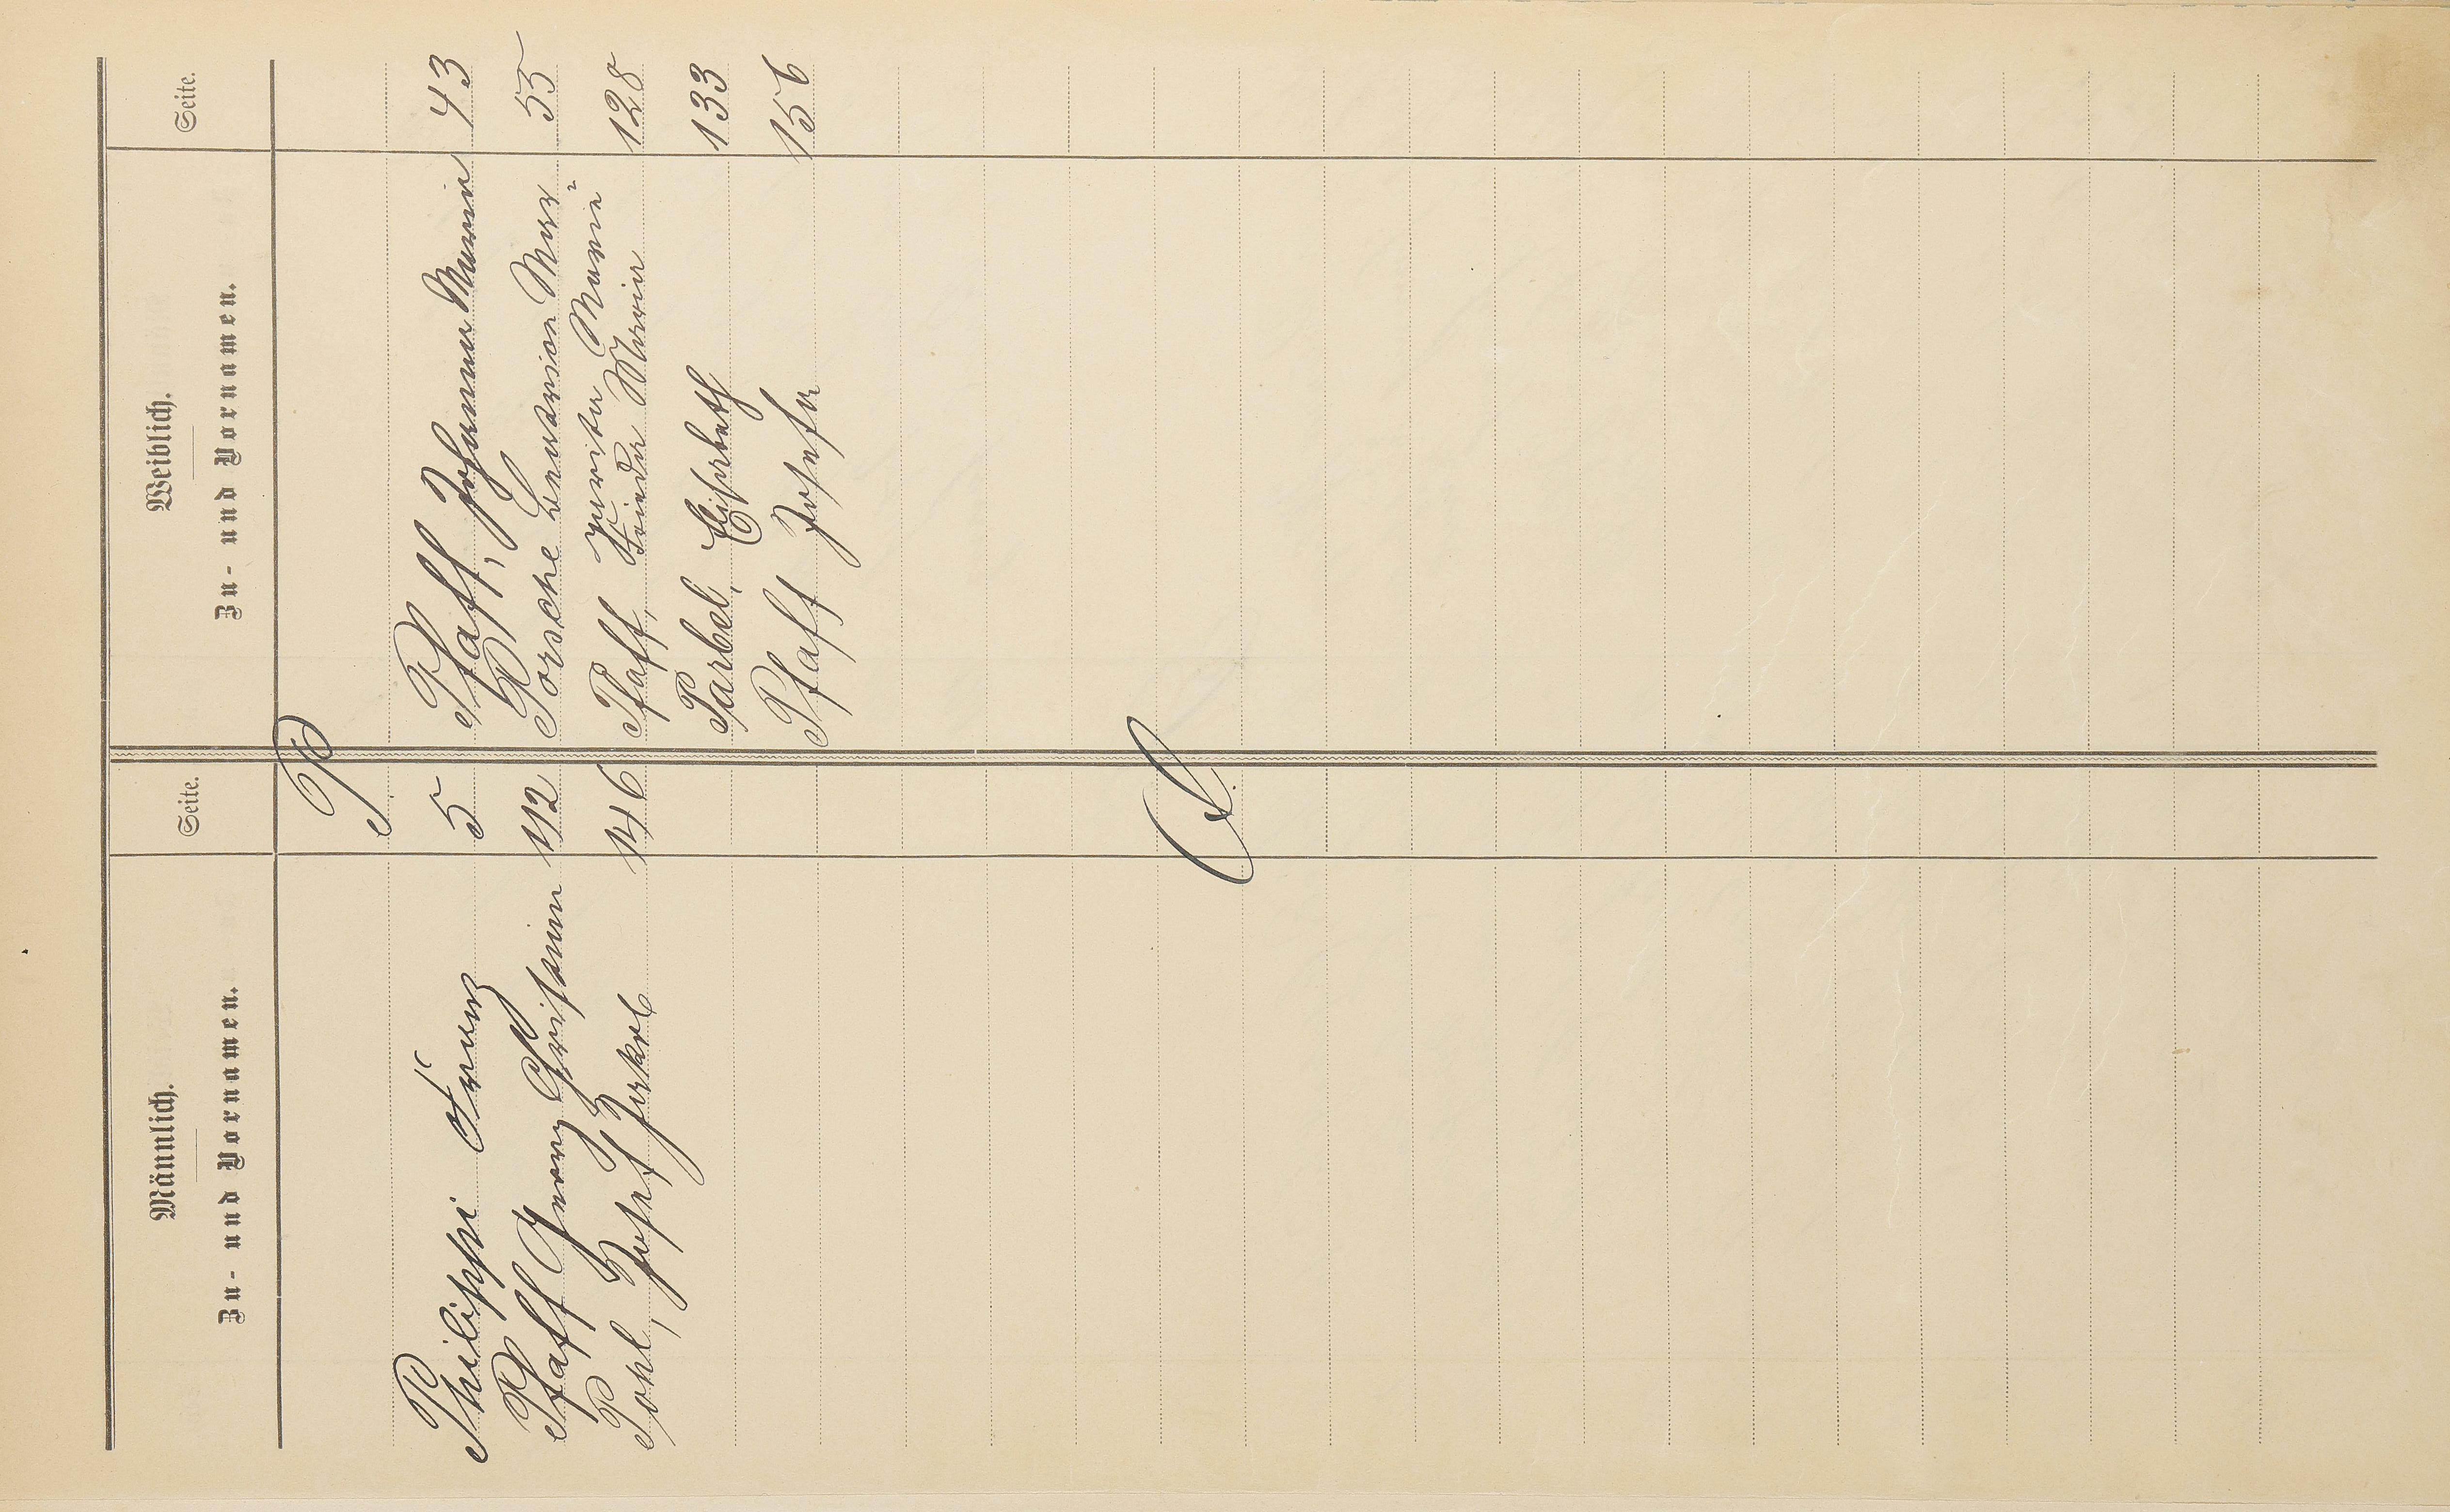 Männlich.
Zu- und Vornamen.
Seite.
Weiblich.
Zu- und Vornamen.
Seite.
P.
Philippi Franz 5
Pfaff Georg Christian 112
Pohl, Josef Jakob 146
Pfaff, Johanna Maria 43
Porsche 55
Pfaff, Marie
Frieda Maria 128
Parbel, Elisabeth 133
Pfaff Josefa 156
Q.